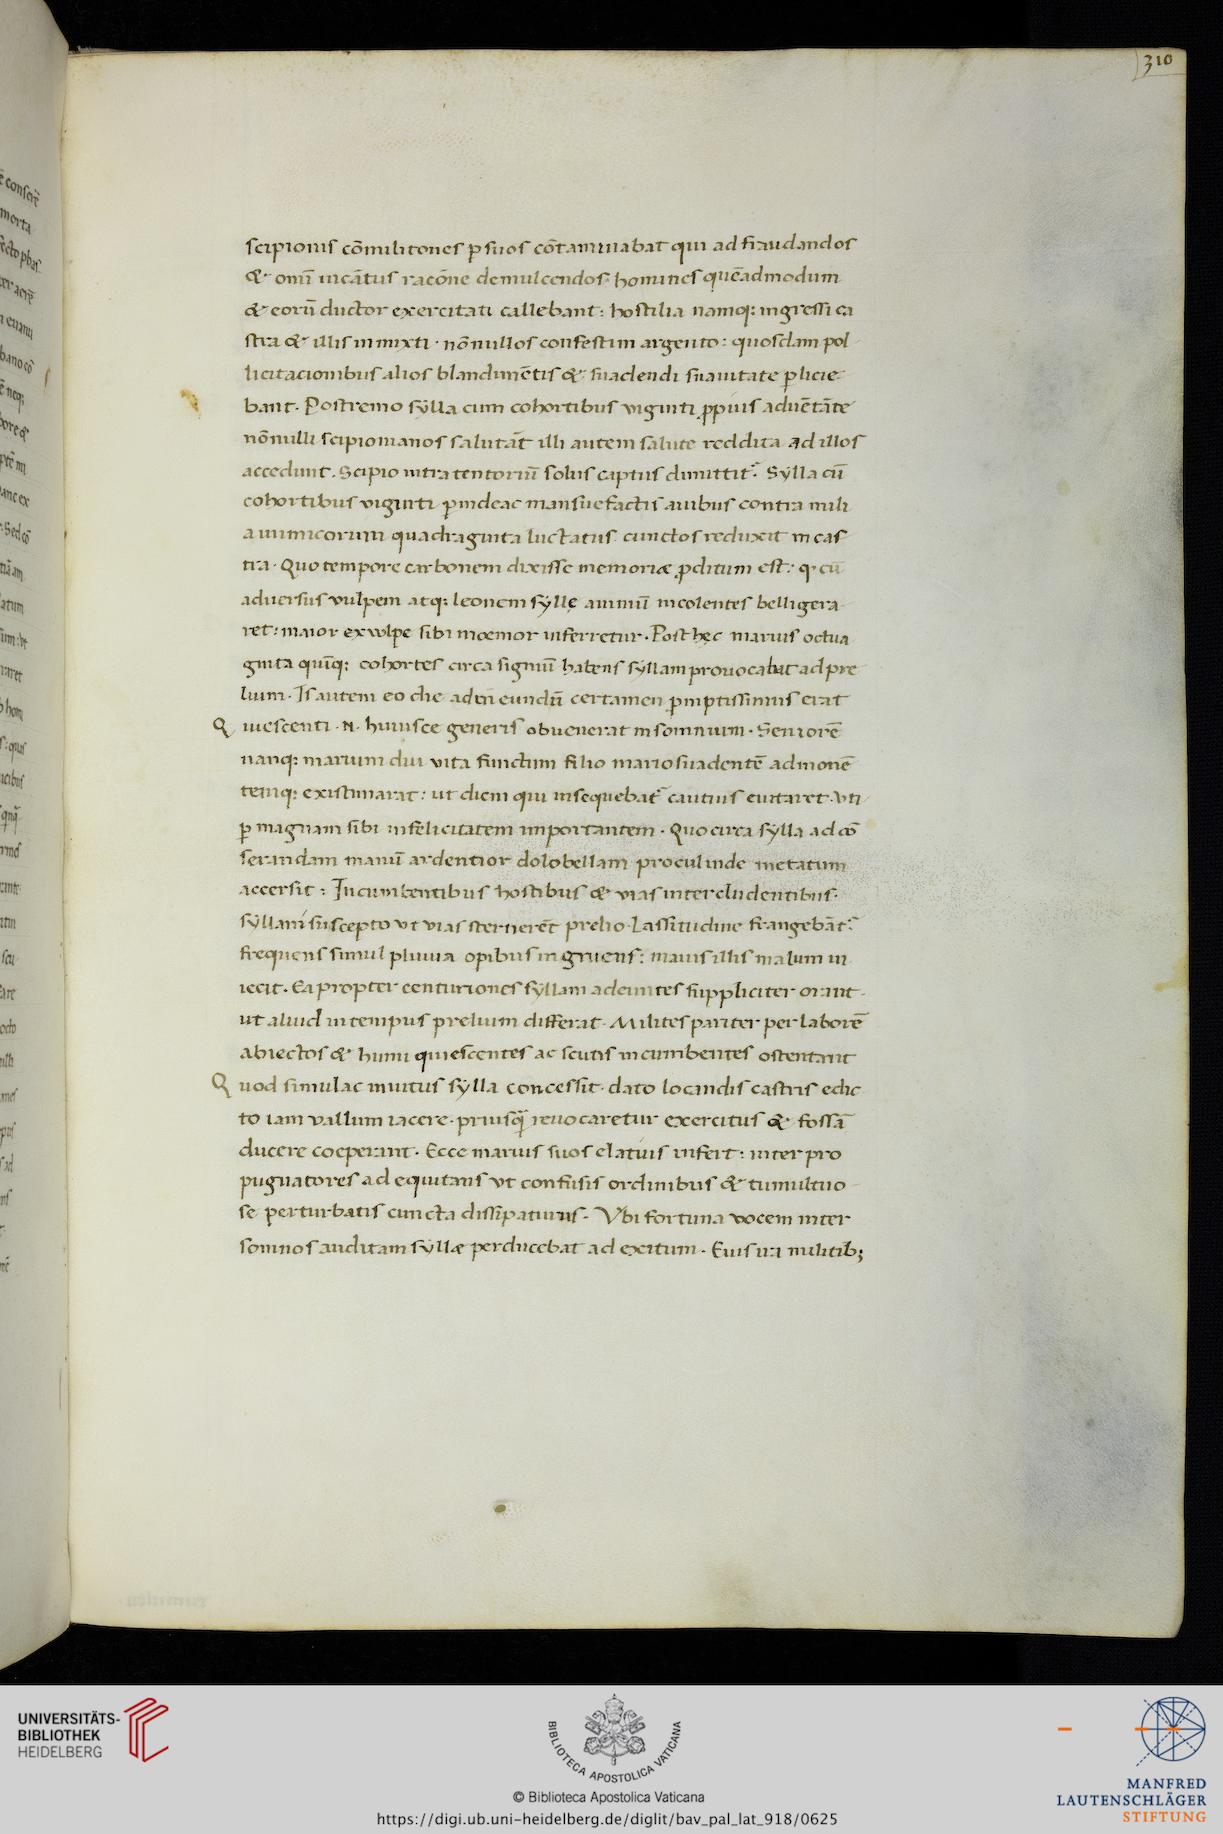 310
scipionis cōmilitones p suos cōtaminabat qui ad fraudandos
& omī incātus racōne demulcendos homines quēadmodum
& eorū ductor exercitati callebant: hostilia namq: ingressi ca
stra & illis inmixti · nōnullos confestim argento: quosdam pol-
licitacionibus alios blandimētis & suadendi suauitate plicie-
bant. Postremo sylla cum cohortibus viginti ppius aduētāte
nōnulli scipionanos salutāt illi autem salute reddita ad illos
accedunt. Scipio intra tentoriū solus captus dimittit᷑. Sylla cū
cohortibus viginti pindeac mansuefactis auibus contra mili
a inimicorum quadraginta luctatus cunctos reduxit in cas
tra · Quo tempore carbonem dixisse memoriæ pditum est: q cū
aduersus vulpem atq: leonem syllę animū incolentes belligera
ret: maior ex vulpe sibi moemor inferretur · Post hęc marius octua
ginta quīq: cohortes circa signiū habens syllam prouocabat ad pre
lium · Is autem eo die ad in eundū certamen pmptissimus erat
Quiescenti · N · huiusce generis obuenerat insomnium · Seniorē
nanq: marium diu vita functum filio mario suadentē admonē
temq: existimarat: ut diem qui insequebat᷑ cautius euitaret · uti
p magnam sibi infelicitatem importantem · Quo circa sylla ad cō
serandam manū ardentior dolobellam procul inde metatum
accersit: Incumbentibus hostibus & vias intercludentibus ·
syllani suscepto ut vias sternerēt prelio · Lassitudine frangebāt᷑
frequens simul pluuia opibus ingruens: maius illis malum in
iecit · Ea propter centuriones syllam adeuntes suppliciter orant
ut aliud in tempus prelium differat · Milites pariter per laborē
abiectos & humi quiescentes ac scutis incumbentes ostentant
Quod simulac inuitus sylla concessit · dato locandis castris edic
to iam vallum iacere · priusq̄ reuocaretur exercitus & fossā
ducere coeperant · Ecce marius suos elatius infert: inter pro
pugnatores ad equitans ut confusis ordinibus & tumultuo-
se perturbatis cuncta dissipaturus · Vbi fortuna vocem inter
somnos auditam syllæ perducebat ad exitum · Eius ira militib;
UNIVERSITÄTS-
BIBLIOTHEK
HEIDELBERG
BIBLIOTECA APOSTOLICA VATICANA
© Biblioteca Apostolica Vaticana
https://digi.ub.uni-heidelberg.de/diglit/bav_pal_lat_918/0625
MANFRED
LAUTENSCHLÄGER
STIFTUNG